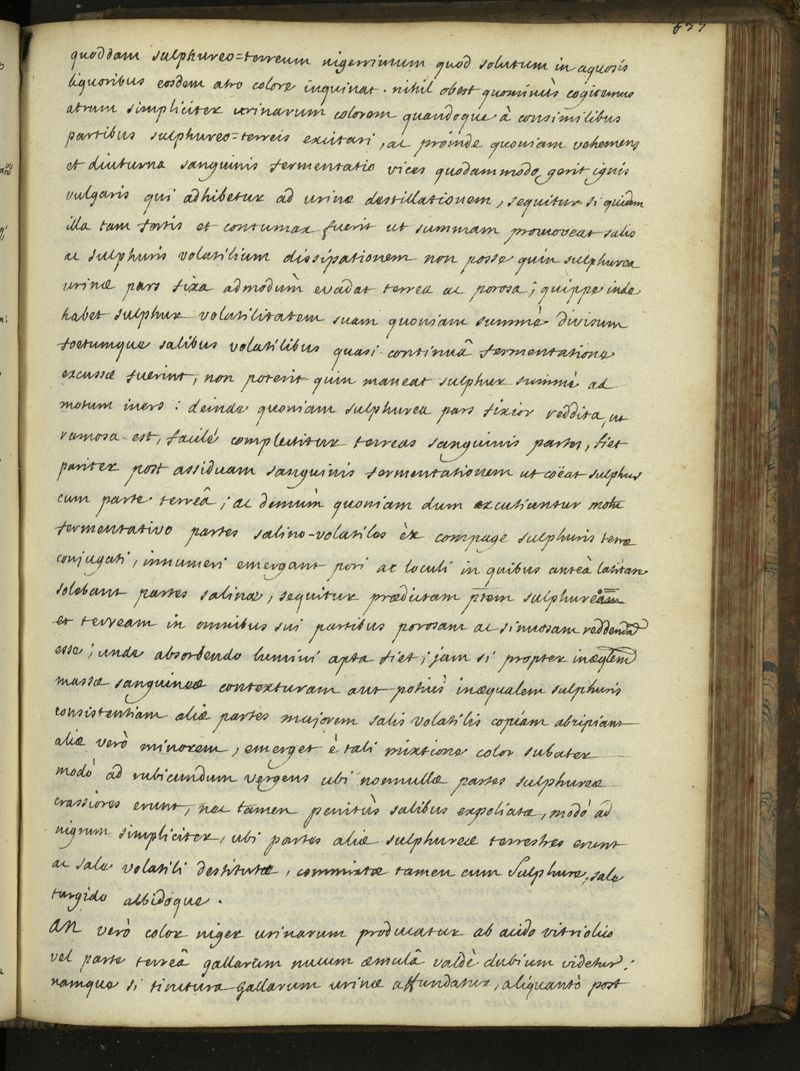 quoddam sulphureo=terreum nigerrimum quod solutum in aquosis
liquoribus eosdem atro colore inquinat. nihil obest quominùs cogitemus
atrum simpliciter urinarum colorem quandoque à consimilibus
partibus sulphureo=terreis excitari, ac proinde quoniam vehemens
et diuturna sanguinis fermentatio vices quodammodo gerit ignis
vulgaris qui adhibetur ad urinæ destillationem, sequitur si quidem
illa tam fortis et contumax fuerit ut summam promoveat salis
ac sulphuris volatilium dissipationem non posse quin sulphurea
urinæ pars fixa admodùm evadat terrea ac porosa; quippe inde
habet sulphur volatilitatem suam quoniam summè divisum
foetumque salibus volatilibus quasi continuâ fermentatione
excussæ fuerint, non poterit quin maneat sulphur summè ad
motum iners: deinde quoniam sulphurea pars fixior reddita, ut
ramosa est, facilè complectitur terreas sanguinis partes, fiet
pariter post assiduam sanguinis fermentationem ut coëat sulphur
cum parte terreâ; ac demùm quoniam dum excutientur motu
fermentativo partes salino-volatiles èx compage sulphuris terræ
conjugati, innumeri emergant pori ac loculi in quibus anteà latitare
solebant partes salinæ, sequitur prædictam ptem sulphuream
et terream in omnibus sui partibus porosam ac sinuosam reddendã
esse; unde absorbendo lumini apta fiet; jam si propter inæqlem
massæ sanguineæ contexturam aut potiùs inæqualem sulphuris
consistentiam aliæ partes majorem salis volatilis copiam abripiant
aliæ verò minorem, emerget è tali mixtione color subater
modò ad rubicundum vergens ubi nonnullæ partes sulphureæ
crassiores erunt, nec tamen penitùs salibus expoliatæ, modò ad
nigrum simpliciter, ubi partes aliæ sulphureæ terrestres erunt
ac sale volatili destitutæ, commixtæ tamen cum Sulphure, sale
turgido albidoque.
An verò color niger urinarum producatur ab acido vitriolico
vel parte terreâ gallarum nucum æmulâ valdè dubium videtur:
namque si tinctura gallarum urinæ affundatur, aliquantò post